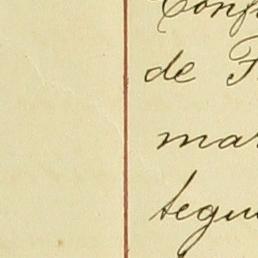 Conf
de F
mar
tegui